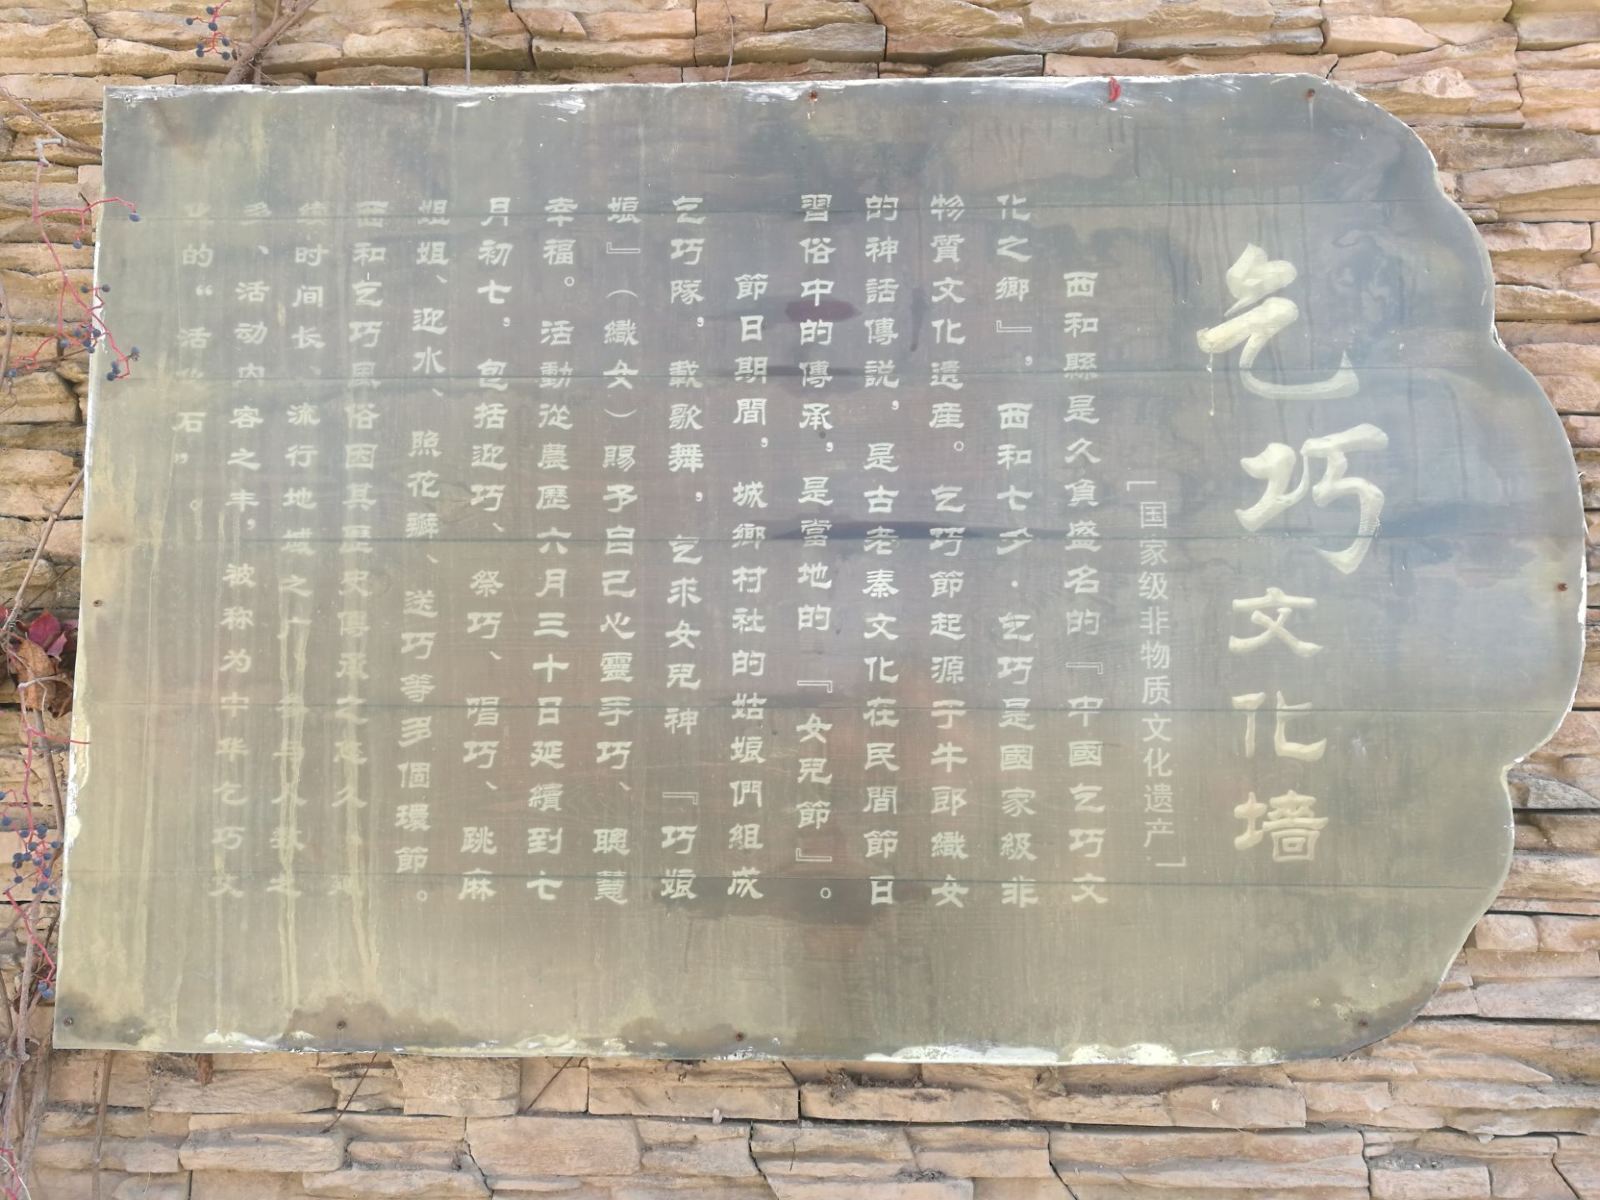 乞巧文化墙
[国家级非物质文化遗产]
西和縣是久負盛名的『中國乞巧文
化之鄉』，西和七夕·乞巧是國家級非
物質文化遺産。乞巧節起源于牛郎織女
的神話傳説，是古老秦文化在民間節日
習俗中的傳承，是當地的『女兒節』。
節日期間，城鄉村社的姑娘們組成
乞巧隊，載歌舞，乞求女兒神『巧娘
娘』（織女）賜予自己心靈手巧、聰慧
幸福。活動從農歷六月三十日延續到七
月初七，包括迎巧、祭巧、唱巧、跳麻
姐姐、迎水、照花瓣、送巧等多個環節。
西和乞巧風俗因其歷史傳承之悠久、
续时间长、流行地域之广、参与人数之
多、活动内容之丰，被称为中华乞巧文
的“活化石”。